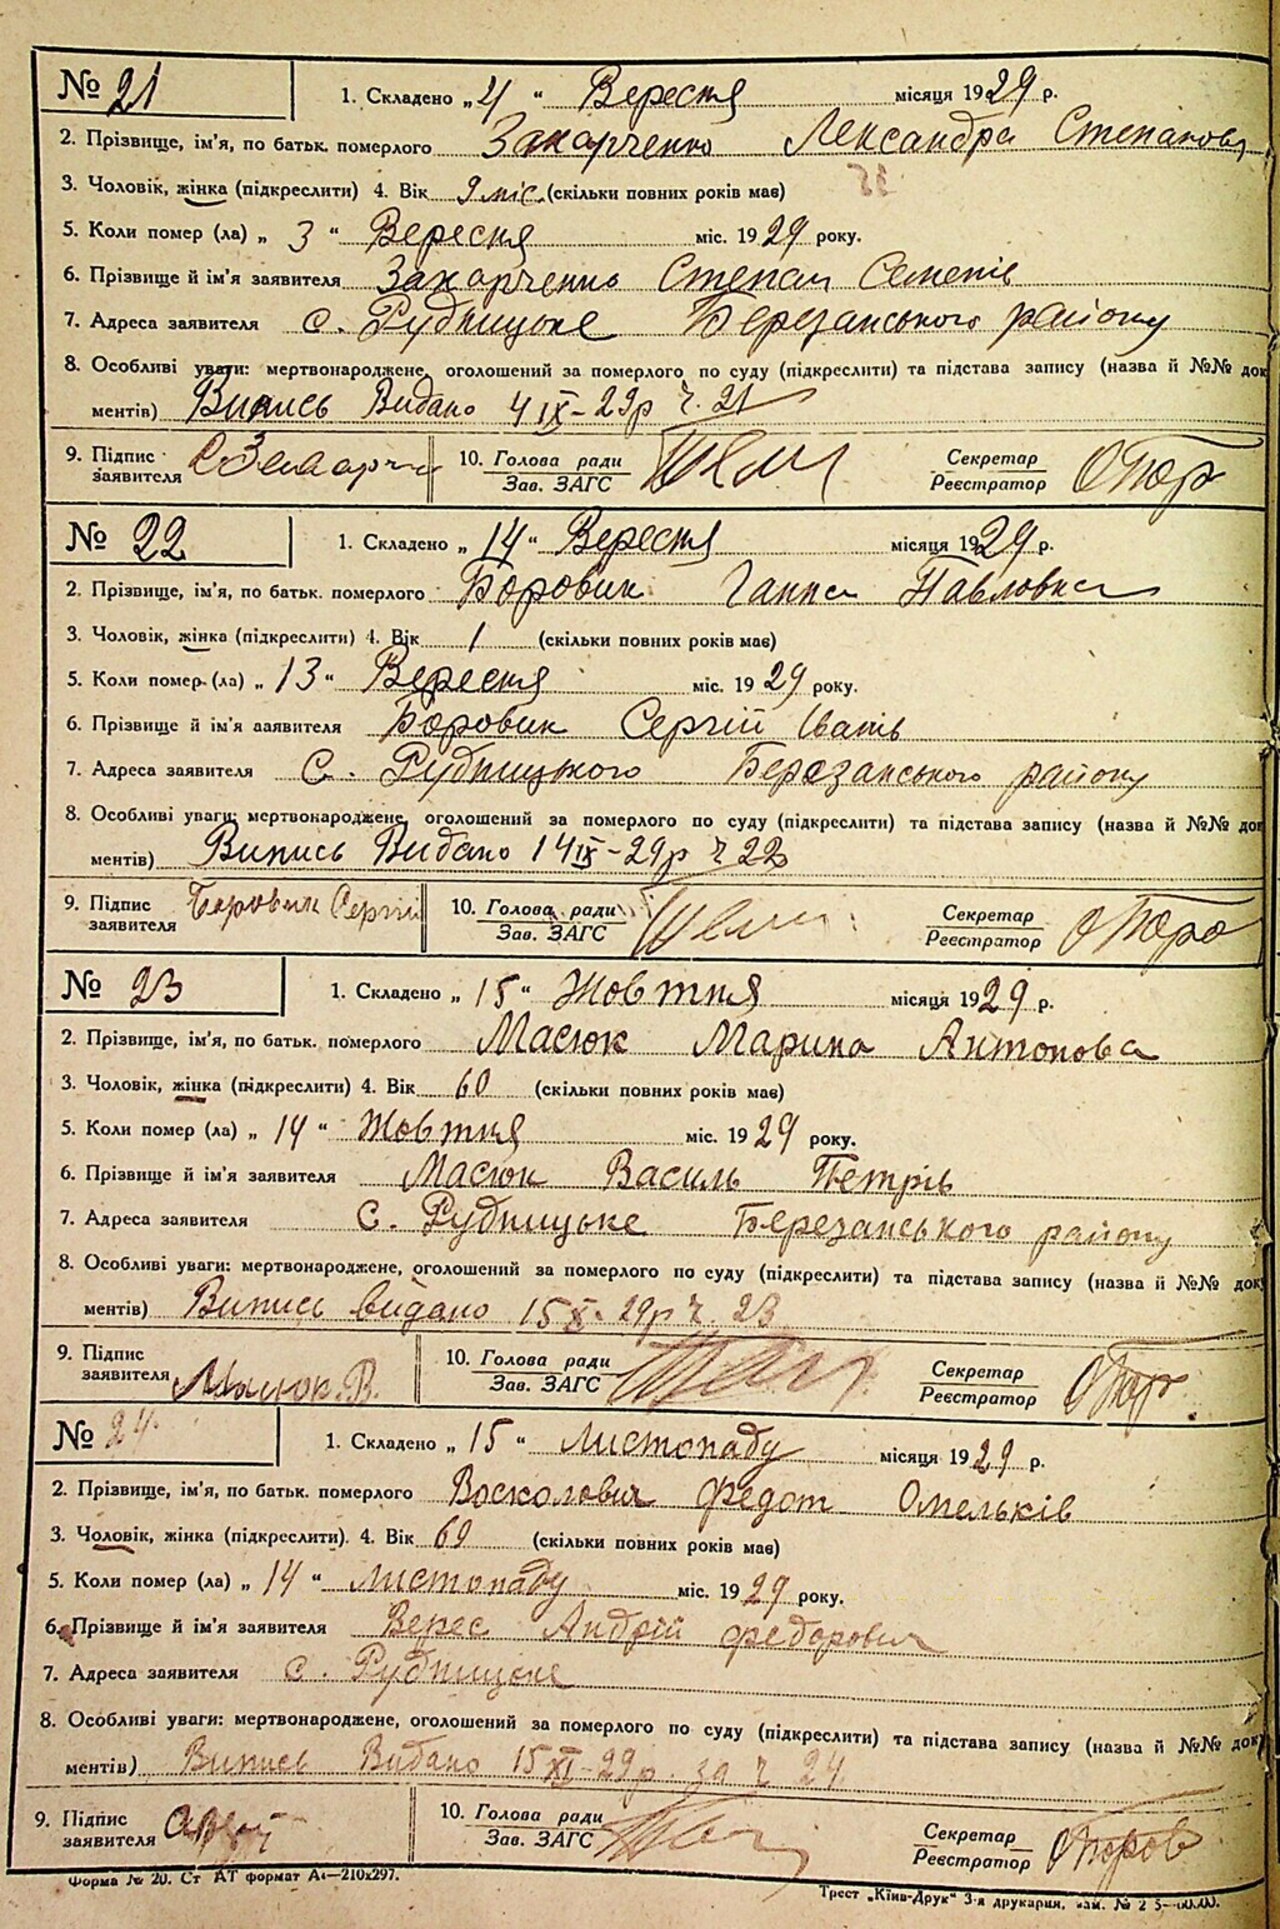 № 21 1. Складено „4“ Вересня місяця 1929 р.
2. Прізвище, ім'я, по батьк. померлого Захарченко Лександра Степанова
3. Чоловік, жінка (підкреслити) 4. Вік 9 міс. (скільки повних років має)
5. Коли помер (ла) „3“ Вересня міс. 1929 року.
6. Прізвище й ім'я заявителя Захарченко Степан Семенів
7. Адреса заявителя с. Рудницьке Березанського району
8. Особливі уваги: мертвонароджене, оголошений за померлого по суду (підкреслити) та підстава запису (назва й №№ док
ментів) Випись Видано 4 IX-29р ч. 21
9. Підпис заявителя 10. Голова ради Зав. ЗАГС Секретар Реєстратор
№ 22 1. Складено „14“ Вересня місяця 1929 р.
2. Прізвище, ім'я, по батьк. померлого Боровик Ганна Павловна
3. Чоловік, жінка (підкреслити) 4. Вік 1 (скільки повних років має)
5. Коли помер (ла) „13“ Вересня міс. 1929 року.
6. Прізвище й ім'я заявителя Боровик Сергій Іванів
7. Адреса заявителя с. Рудницького Березанського району
8. Особливі уваги: мертвонароджене, оголошений за померлого по суду (підкреслити) та підстава запису (назва й №№ док
ментів) Випись Видано 14 IX-29р ч 22
9. Підпис заявителя Боровик Сергій 10. Голова ради Зав. ЗАГС Секретар Реєстратор
№ 23 1. Складено „15“ Жовтня місяця 1929 р.
2. Прізвище, ім'я, по батьк. померлого Масюк Марина Антонова
3. Чоловік, жінка (підкреслити) 4. Вік 60 (скільки повних років має)
5. Коли помер (ла) „14“ Жовтня міс. 1929 року.
6. Прізвище й ім'я заявителя Масюк Василь Петрів
7. Адреса заявителя с. Рудницьке Березанського району
8. Особливі уваги: мертвонароджене, оголошений за померлого по суду (підкреслити) та підстава запису (назва й №№ док
ментів) Випись видано 15 X-29р ч. 23
9. Підпис заявителя Масюк В. 10. Голова ради Зав. ЗАГС Секретар Реєстратор
№ 24 1. Складено „15“ Листопаду місяця 1929 р.
2. Прізвище, ім'я, по батьк. померлого Восколович Федот Омельків
3. Чоловік, жінка (підкреслити). 4. Вік 69 (скільки повних років має)
5. Коли помер (ла) „14“ Листопаду міс. 1929 року.
6. Прізвище й ім'я заявителя Верес Андрій Федорович
7. Адреса заявителя с. Рудницьке
8. Особливі уваги: мертвонароджене, оголошений за померлого по суду (підкреслити) та підстава запису (назва й №№ док
ментів) Випись Видано 15 XI-29р. за ч 24
9. Підпис заявителя 10. Голова ради Зав. ЗАГС Секретар Реєстратор
Форма № 20. Ст АТ формат А4—210х297.
Трест „Київ-Друк“ 3-я друкарня, зам. №